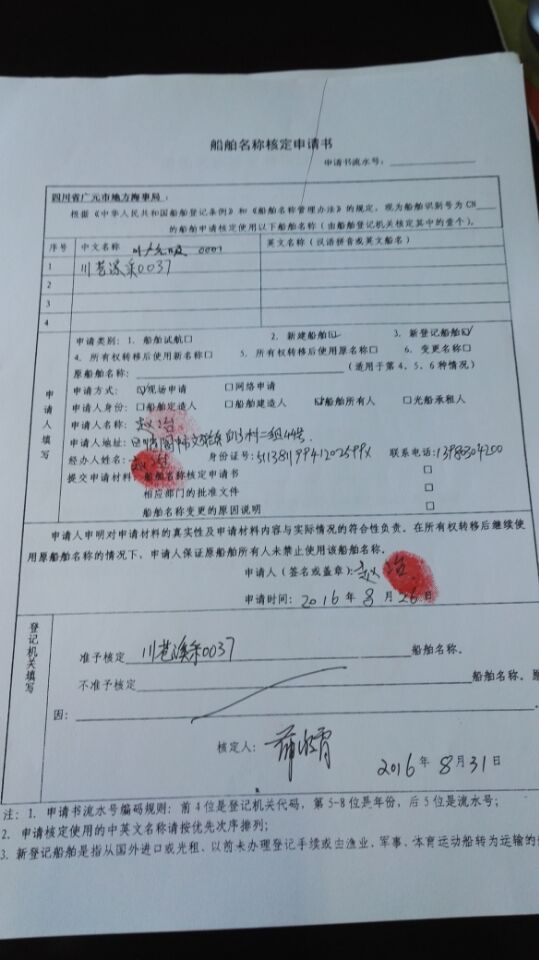 船舶名称核定申请书
申请书流水号：
四川省广元市地方海事局：
根据《中华人民共和国船舶登记条例》和《船舶名称管理办法》的规定，现为船舶识别号为CN
的船舶申请核定使用以下船舶名称（由船舶登记机关核定其中的壹个）。
序号 中文名称 0001 英文名称（汉语拼音或英文船名）
1 川苍溪采0037
2
3
4
申请人填写
申请类别：1. 船舶试航□ 2. 新建船舶☑ 3. 新登记船舶☑
4. 所有权转移后使用新名称□ 5. 所有权转移后使用原名称□ 6. 变更名称□
原船舶名称： （适用于第4、5、6种情况）
申请方式： ☑现场申请 □网络申请
申请人身份：□船舶定造人 □船舶建造人 ☑船舶所有人 □光船承租人
申请人名称： 赵冶
申请人地址： 村二组44号
经办人姓名： 赵冶 身份证号： 联系电话：
提交申请材料：船舶名称核定申请书 □
相应部门的批准文件 □
船舶名称变更的原因说明 □
申请人申明对申请材料的真实性及申请材料内容与实际情况的符合性负责。在所有权转移后继续使
用原船舶名称的情况下，申请人保证原船舶所有人未禁止使用该船舶名称。
申请人（签名或盖章）：赵冶
申请时间：2016年8月26日
登记机关填写
准予核定 川苍溪采0037 船舶名称。
不准予核定 船舶名称。原
因：
核定人：
2016年8月31日
注：1. 申请书流水号编码规则：前4位是登记机关代码，第5-8位是年份，后5位是流水号；
2. 申请核定使用的中英文名称请按优先次序排列；
3. 新登记船舶是指从国外进口或光租、以前未办理登记手续或由渔业、军事、体育运动船转为运输的